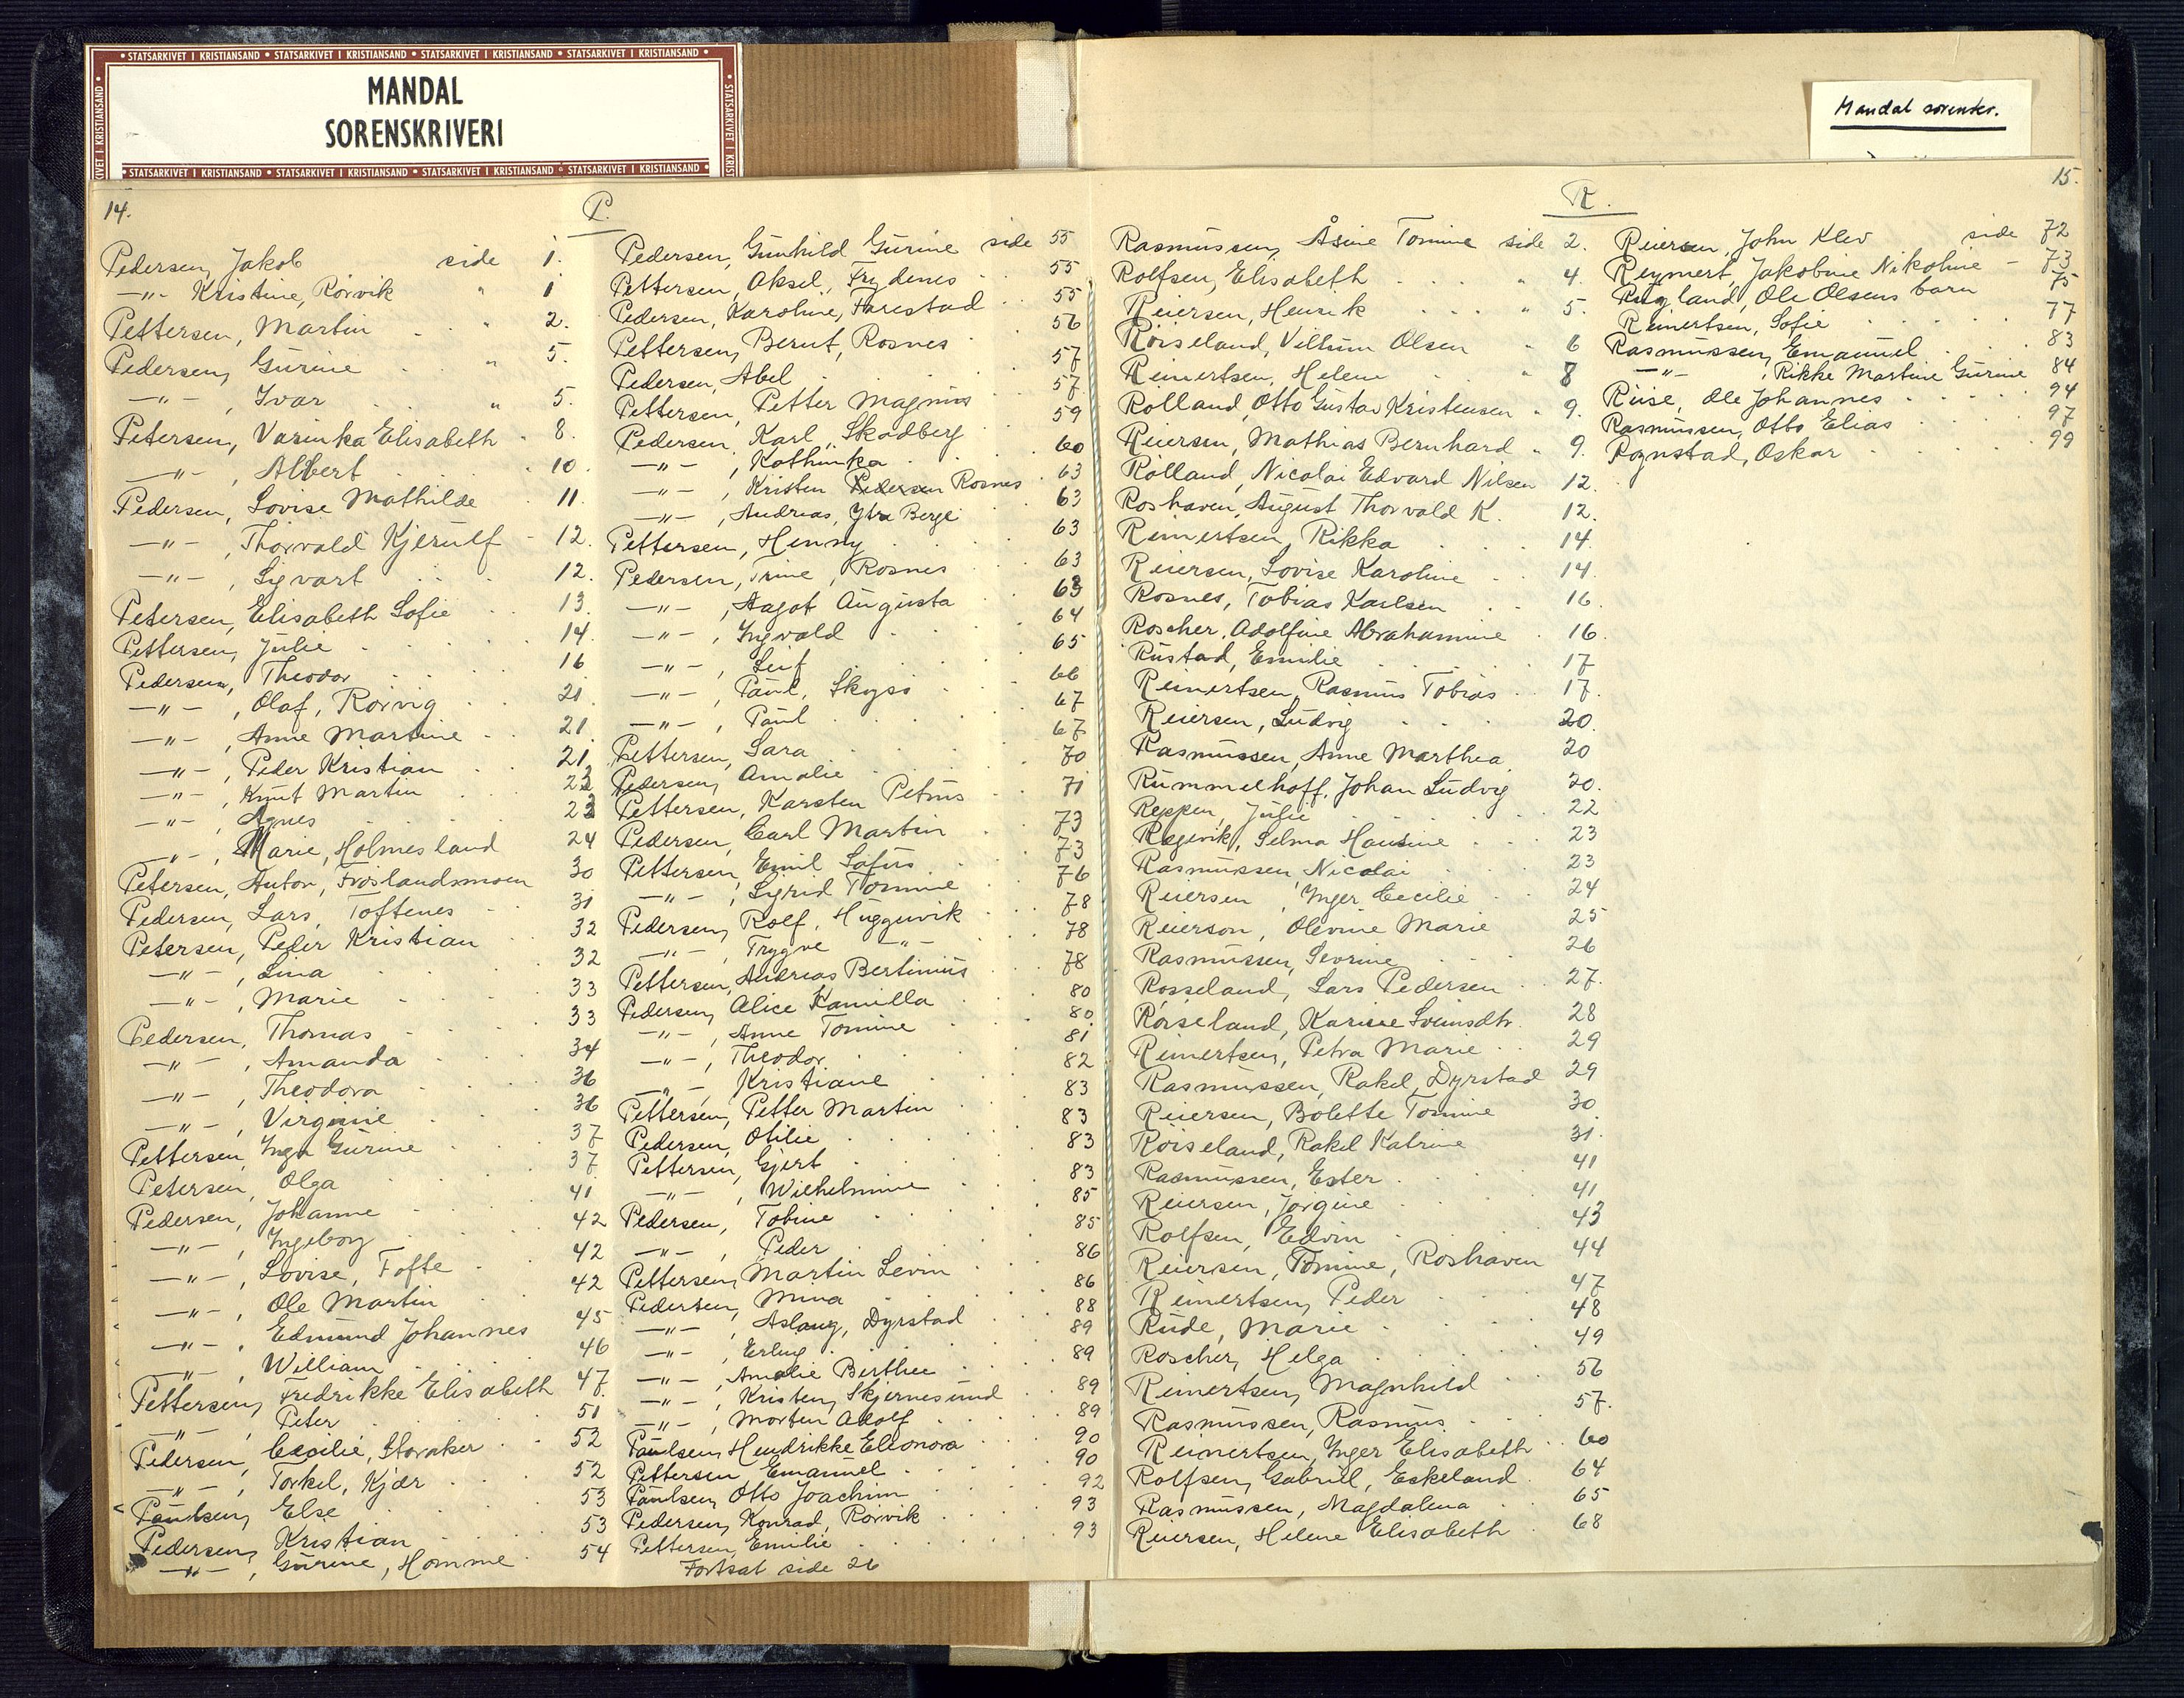 STATSARKIVET I KRISTIANSAND • STATSARKIVET I KRISTIANSAND • STATSARKIVET I KRISTIANSAND • STATSARKIVET I KRISTIANSAND
MANDAL
SORENSKRIVERI
STATSARKIVET I KRISTIANSAND • STATSARKIVET I KRISTIANSAND • STATSARKIVET I KRISTIANSAND • STATSARKIVET I KRISTIANSAND
Mandal sorenskr.
14.
P.
Pedersen, Jakob side 1.
-"- Kristine, Rörvik " 1
Pettersen, Martin " 2.
Pedersen, Gurine " 5.
-"- , Ivar " 5.
Petersen, Varinka Elisabeth 8.
-"- , Albert 10.
Pedersen, Lovise Mathilde 11.
-"- , Thorvald Kjerulf 12.
-"- , Sigvart 12.
Petersen, Elisabeth Sofie 13
Pettersen, Julie 14.
Pedersen, Theodor 16
-"- , Olaf, Rörvig 21.
-"- , Anne Martine 21.
-"- , Peder Kristian 21
-"- , Knut Martin 23
-"- , Agnes 23
-"- , Marie, Holmesland 24
Petersen, Anton, Froslandsmoen 30
Pedersen, Lars, Toftenes 31
Petersen, Peder Kristian 32
-"- , Lina 32
-"- , Marie 33
Pedersen, Thomas 33
-"- , Amanda 34
-"- , Theodora 36
-"- , Virginie 36
Pettersen, Inga Gurine 37
Petersen, Olga 37
Pedersen, Johanne 41
-"- , Ingeborg 42
-"- , Lovise, Tofte 42
-"- , Ole Martin 42
-"- , Edmund Johannes 45
-"- , William 46
Pettersen, Fredrikke Elisabeth 47.
-"- , Peter 51
Pedersen, Cecilie, Storaker 52
-"- , Torkel, Kjær 52
Paulsen, Else 53
Pedersen, Kristian 53
-"- , Gurine, Homme 54
Pedersen, Gunhild Gurine side 55
Pettersen, Aksel, Frydenes 55
Pedersen, Karoline, Farestad 55
Pettersen, Bernt, Rosnes 56
Pedersen, Abel 57
Pettersen, Petter Magnus 57
Pedersen, Karl, Skadberg 59
-"- , Kathinka 60
-"- , Kristen Pedersen Rosnes 63
-"- , Andreas, Ytre Berge 63
Pettersen, Henny 63
Pedersen, Trine, Rosnes 63
-"- , Aagot Augusta 63
-"- , Ingvald 64
-"- , Leif 65
-"- , Paul, Skogsø 66
-"- , Paul 67
Pettersen, Sara 67
Pedersen, Amalie 70
Pettersen, Karsten Petrus 71
Pedersen, Carl Martin 73
Pettersen, Emil Lafus 73
-"- , Sigrid Tomine 76
Pedersen, Rolf, Hugguvik 78
-"- , Trygve -"- 78
Pettersen, Andreas Bertinius 78
Pedersen, Alice Kamilla 80
-"- , Anne Tomine 80
-"- , Theodor 81
-"- , Kristiane 82
Pettersen, Petter Martin 83
Pedersen, Otilie 83
Pettersen, Gjert 83
-"- , Wilhelmine 83
Pedersen, Tobine 85
-"- , Peder 85
Pettersen, Martin Levin 86
Pedersen, Mina 86
-"- , Aslaug, Dyrstad 88
-"- , Erling 89
-"- , Amalie Berthe 89
-"- , Kristen, Skjernesund 89
-"- , Morten Adolf 89
Paulsen, Hendrikke Eleonora 90
Pettersen, Emanuel 90
Paulsen, Otto Joachim 92
Pedersen, Konrad, Rorvik 93
Pettersen, Emilie 93
Fortsat side 26
R.
15.
Rasmussen, Åsine Tomine side 2.
Rolfsen, Elisabeth " 4.
Reiersen, Henrik " 5.
Röiseland, Villum Olsen " 6
Reinertsen, Helene " 8
Rolland, Otto Gustav Kristensen " 9.
Reiersen, Mathias Bernhard " 9.
Rolland, Nicolai Edvard Nilsen 12.
Roshaven, August Thorvald K. 12.
Reinertsen, Rikka 14.
Reiersen, Lovise Karoline 14.
Rosnes, Tobias Karlsen 16.
Roscher, Adolfine Abrahamine 16.
Rustad, Emilie 17
Reinertsen, Rasmus Tobias 17.
Reiersen, Ludvig 20.
Rasmussen, Anne Marthea 20
Rummelhoff, Johan Ludvig 20.
Reppen, Julie 22
Regevik, Selma Hansine 23
Rasmussen, Nicolai 23
Reiersen, Inger Cecilie 24
Reierson, Olevine Marie 25
Rasmussen, Sevrine 26
Rosseland, Lars Pedersen 27.
Röiseland, Karine Sveinsdtr. 28
Reinertsen, Petra Marie 29
Rasmussen, Rakel, Dyrstad 29
Reiersen, Bolette Tomine 30
Röiseland, Rakel Katrine 31.
Rasmussen, Ester 41
Reiersen, Jörgine 41
Rolfsen, Edvin 43
Reiersen, Tomine, Roshaven 44
Reinertsen, Peder 47
Rude, Marie 48
Roscher, Helga 49
Reinertsen, Magnhild 56
Rasmussen, Rasmus 57.
Reinertsen, Inger Elisabeth 60
Rolfsen, Gabriel, Eskeland 64
Rasmussen, Magdalena 65
Reiersen, Helene Elisabeth 68
Reiersen, John Klev side 72
Reymert, Jakobine Nikoline - 73
Rugland, Ole Olsens barn 75
Reinertsen, Sofie 77
Rasmussen, Emanuel 83
-"- , Rikke Martine Gurine 84
Riise, Ole Johannes 94
Rasmussen, Otto Elias 97
Rognstad, Oskar 99